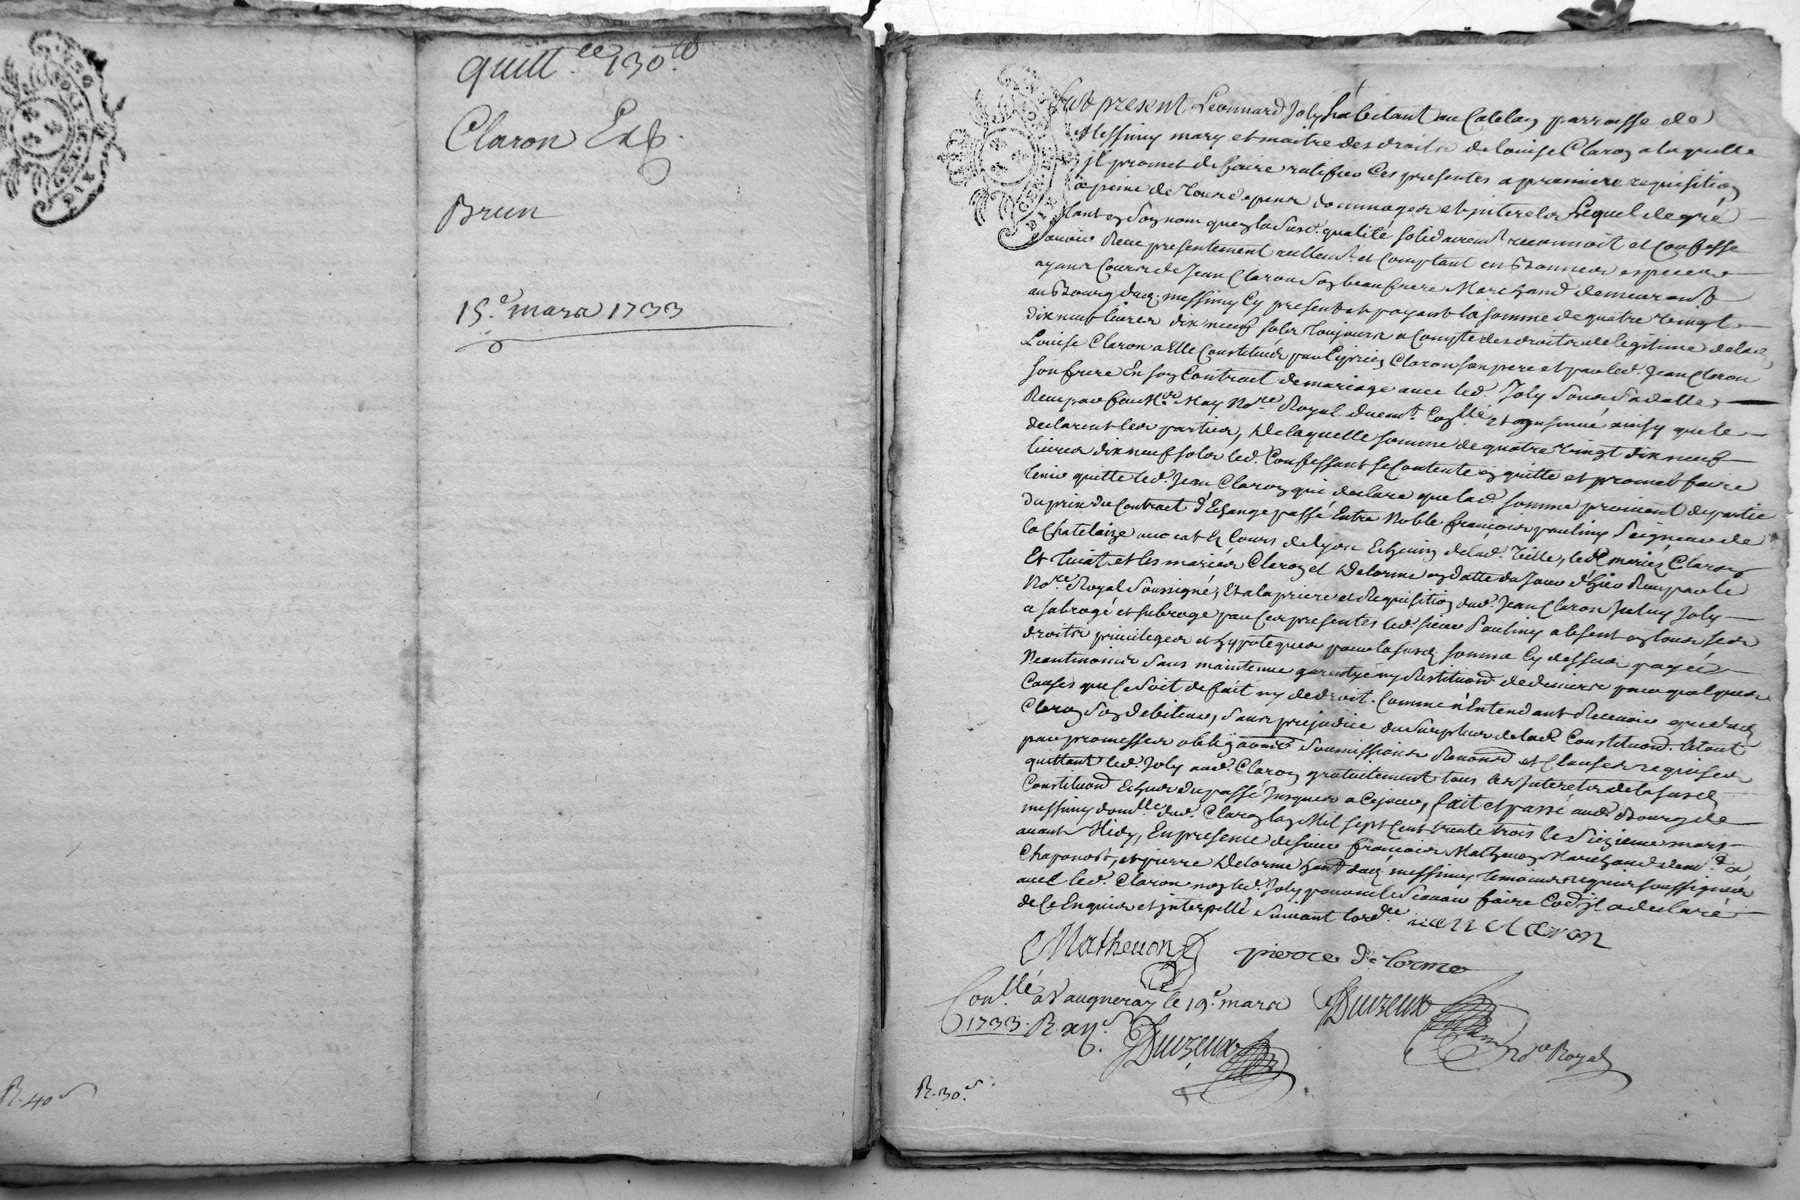 quitt.ce 130 lb
Claron Exp.
Brun
15.e mars 1733
R. 40 s
fut present Leonnard Joly habitant au Catelan parroisse de
Messimy mary et maitre des droits de Louise Claron a laquelle
il promet de faire ratifier Ces presentes a premiere requisition
a peine de tous depens dommages et interets Lequel de gré
tant en son nom que en la susd. qualité solidairem.t reconnoit et Confesse
avoir Receu presentement reellem.t et Comptant en bonnes especes
ayans Cours de Jean Claron son beaufrere Marchand demeurant
au Bourg dud. messimy Cy present et payant la somme de quatre vingt
dix neuf livres dix neuf sols toujours a Compte des droits de legitime de lad.
Louise Claron a Elle Constitués par Claron son pere et par led. Jean Claron
son frere En son Contract de mariage avec led. Joly sous sa datte
Receu par feu M.e May No.re Royal duem.t Con.llé et insinué ainsy que le
declarent les parties, De laquelle somme de quatre vingt dix neuf
livres dix neuf sols led. Confessant se Contente en quitte et promet faire
tenir quitte led. Jean Claron qui declare que lad. somme provient de partie
du prix du Contract d'Echange passé Entre Noble françois paulin Seigneur de
la Chatelaize avocat Es Cours de Lyon Echevin de lad. ville, led. mariés Claron
Et et les mariés Claron et Delorme en datte du jour d'hier Receu par le
No.re Royal soussigné, Et a la priere et Requisition dud. Jean Claron Iceluy Joly
a subrogé et subroge par Ces presentes led. sieur Paulin absent en tous ses
droits privileges et hypoteques pour la susd. somme Cy dessus payée
Neantmoins sans maintenue garentie ny Restitution de deniers pour quelques
Causes que Ce soit de fait ny de droit. Comme n'Entendant Recevoir que dud.
Claron son debiteur, sans prejudice du surplus de lad. Constituon. Le tout
par promesses obligaons soumissions Renonons et Clauses requises
quittant led. Joly aud. Claron gratuitement tous les Interets de la susd.
Constituon Echus du passé Jusques a Ce jour, fait et passé aud. Bourg de
messimy domi.lle dud. Claron l'an Mil sept Cent trente trois le mars
avant Midy, En presence de sieur françois Matheuon Marchand dem.t a
Chaponost, et pierre Delorme hant dud. messimy temoins requis soussignés
avec led. Claron non led. Joly pour ne le scavoir faire Co.e il a declaré
de Ce Enquis et interpellé suivant l'ord.ce jean claron
Matheuon pierre de lorme
Con.llé a Vaugneray le 19.e mars
1733. R. xij s. Duvzeux
Duvzeux No.re Royal
R. 30 s